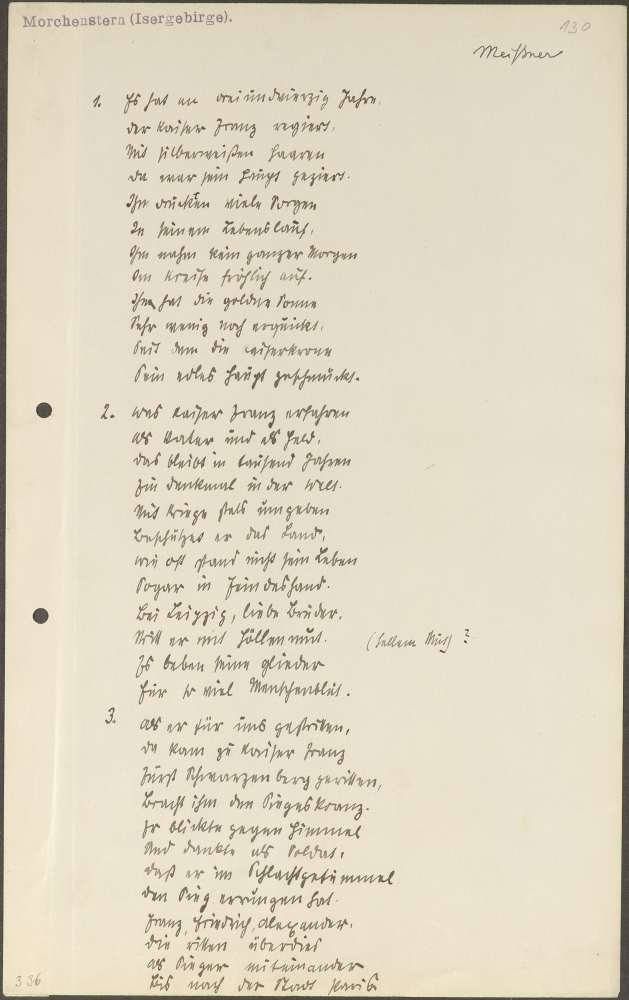 Morchenstern (Isergebirge).
130
Meißner
1. Es hat an dreiundvierzig Jahre,
der Kaiser Franz regiert,
Mit silberweißen Haaren
da war sein Haupt geziert.
Ihn drückten viele Sorgen
In seinem Lebenslauf,
Ihn nahm kein ganzer Morgen
Im Kreise fröhlich auf.
Ihn hat die goldne Sonne
Sehr wenig noch erquickt,
Seit dem die Kaiserkrone
Sein edles Haupt geschmückt.
2. Was Kaiser Franz erfahren
als Vater und als Held,
das bleibt in tausend Jahren
Zu denkmal in der Welt.
Mit Kriege stets umgeben
Beschützet er das Land,
wie oft stand nicht sein Leben
Sogar in Feindeshand.
Bei Leipzig, liebe Brüder,
Ritt er mit Höllenmut. (hellem Mut) ?
Es beben seine Glieder
Für so viel Menschenblut.
3. als er für uns gestritten,
da kam zu Kaiser Franz
Fürst Schwarzenberg geritten,
Bracht ihm den Siegeskranz.
Er blickte gegen Himmel
Und dankte als Soldat,
daß er im Schlachtgetümmel
den Sieg errungen hat.
Franz, Friedrich, Alexander,
die ritten überdies
als Sieger miteinander
Bis nach der Stadt Paris
336